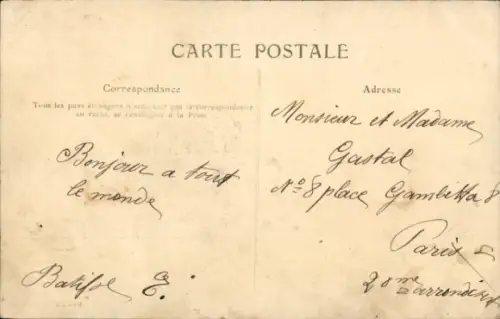 CARTE POSTALE
Correspondance
Tous les pays étrangers n'acceptent pas la correspondance
au recto, se renseigner à la Poste
Bonjour a tout
le monde
Batifse E.
Adresse
Monsieur et Madame
Gastal
No 8 place Gambetta 8
Paris
20me arrondist